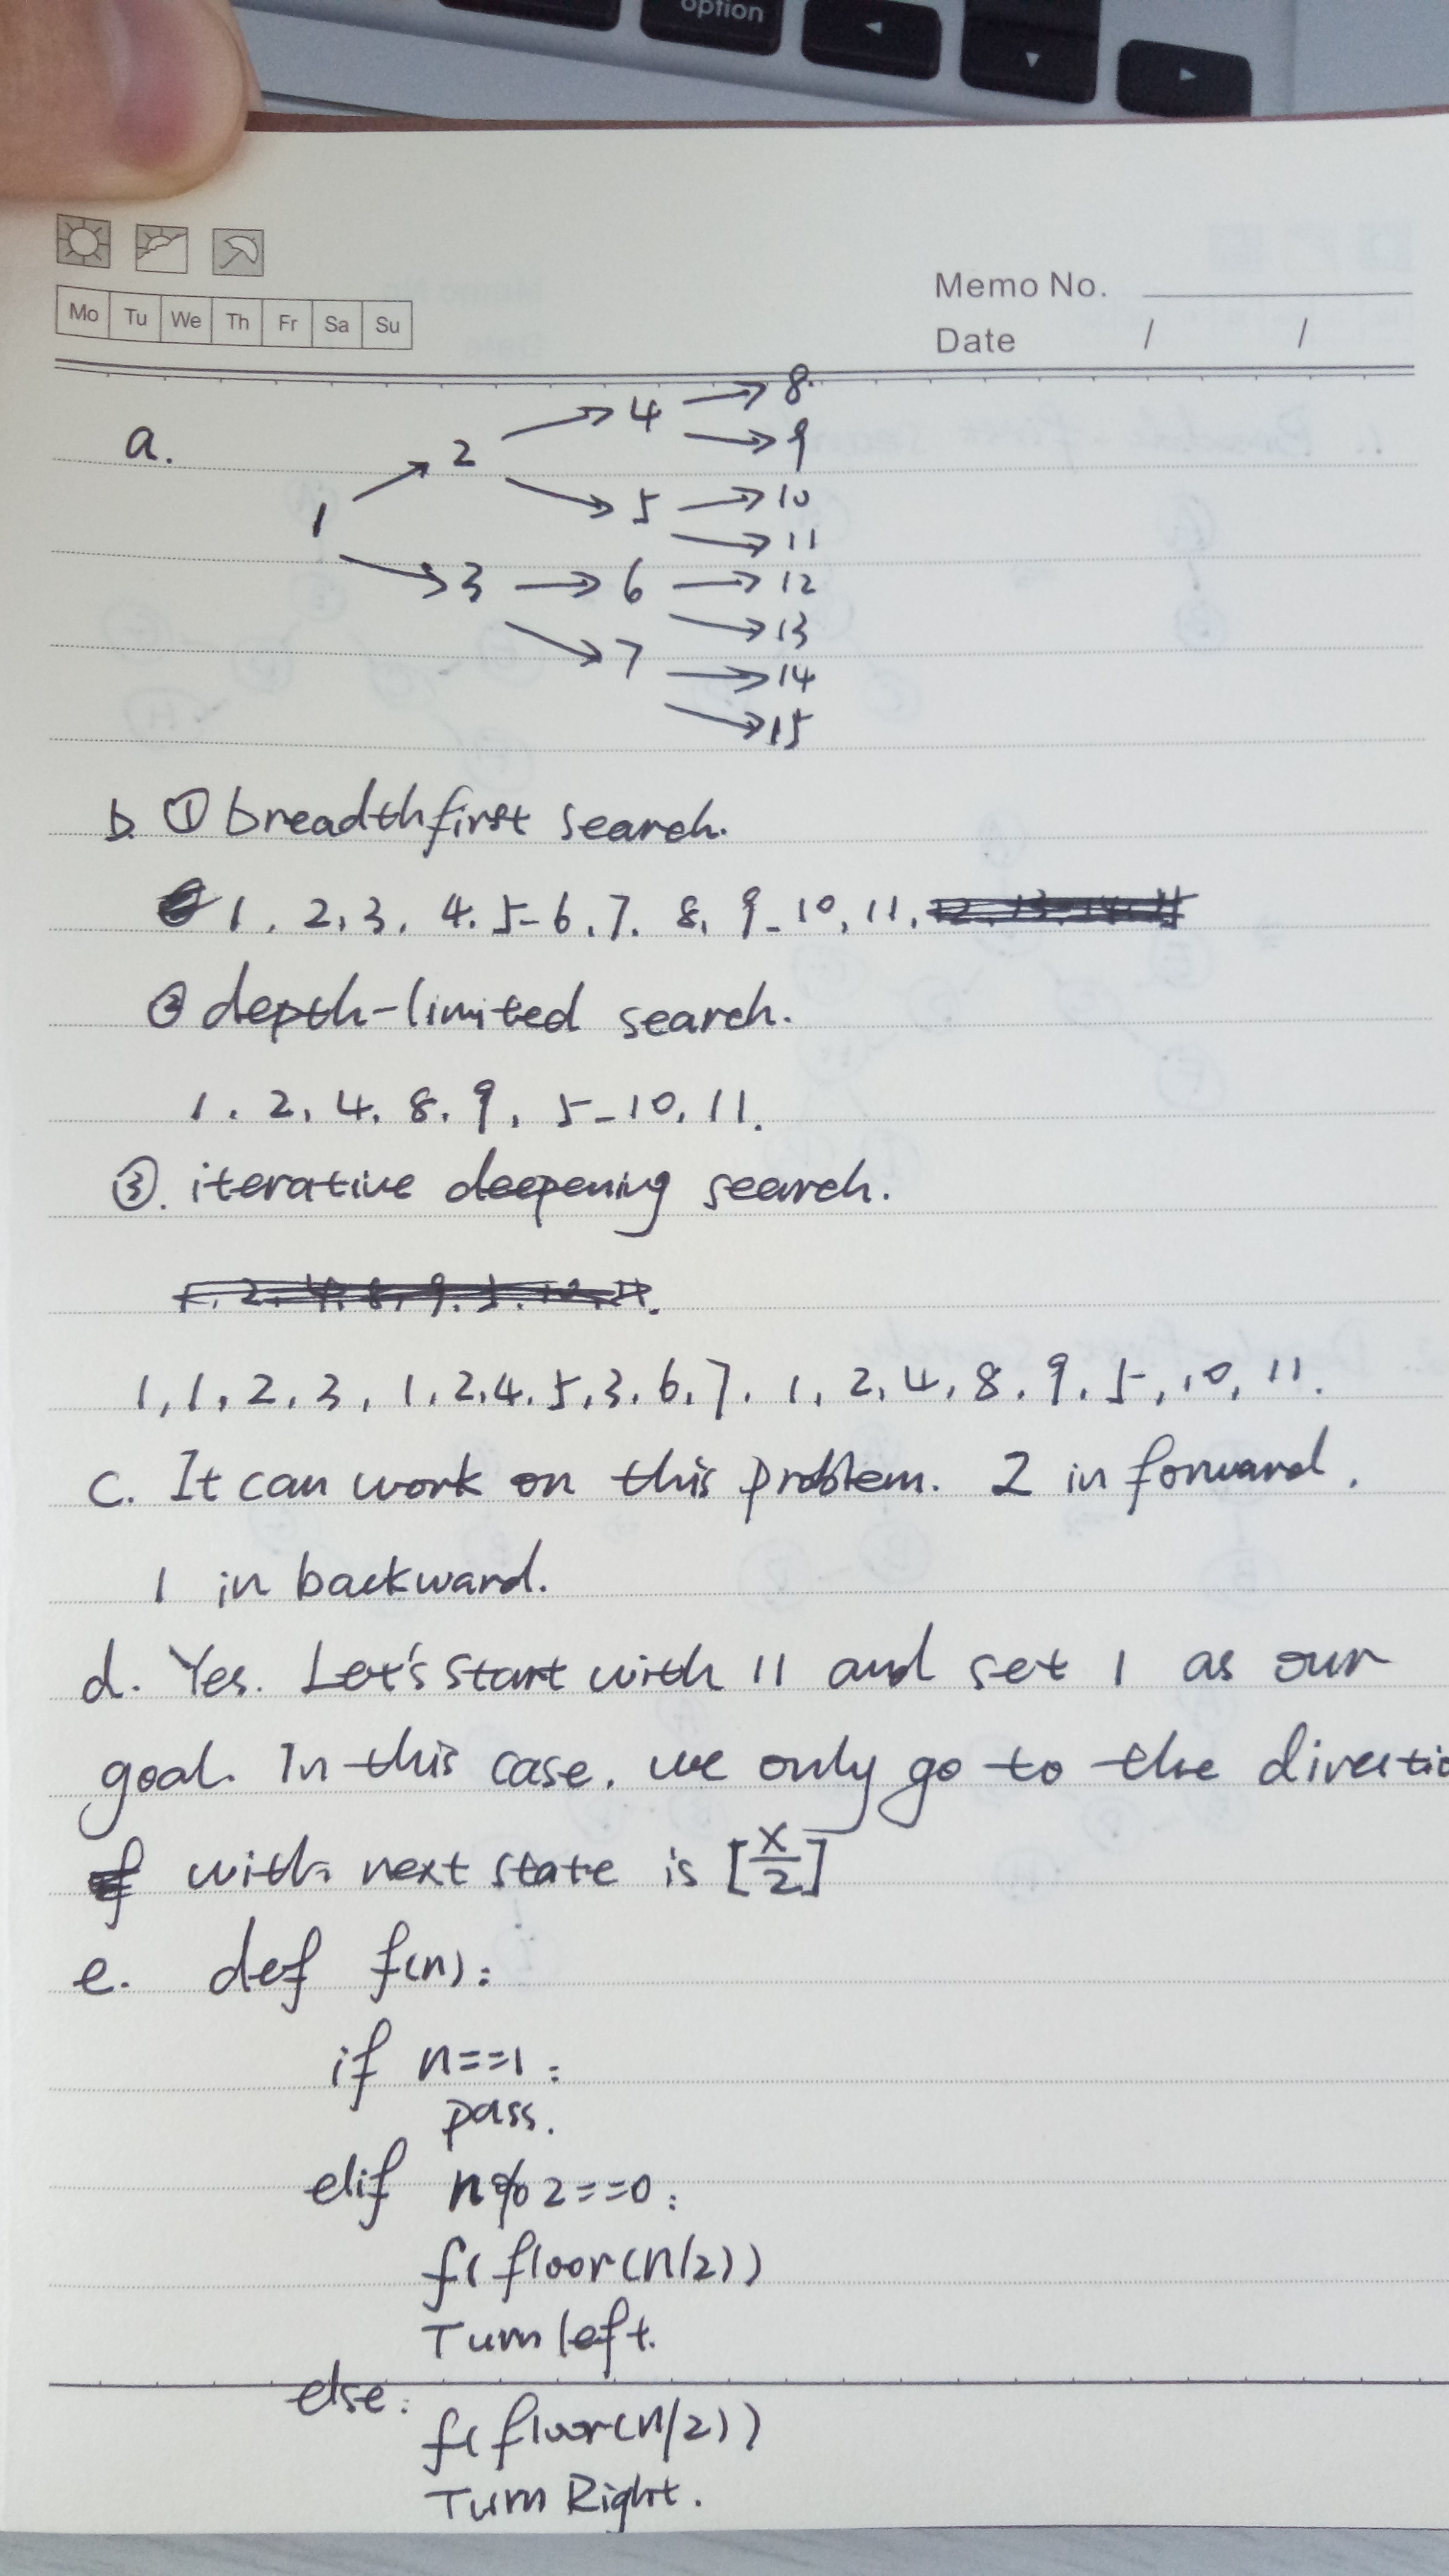 option
Mo Tu We Th Fr Sa Su
Memo No.
Date / /
a.
1 → 2 → 4 → 8
→ 9
→ 5 → 10
→ 11
→ 3 → 6 → 12
→ 13
→ 7 → 14
→ 15
b. ① breadthfirst search.
1, 2, 3, 4, 5, 6, 7, 8, 9, 10, 11,
② depth-limited search.
1, 2, 4, 8, 9, 5, 10, 11.
③. iterative deepening search.
1, 1, 2, 3, 1, 2, 4, 5, 3, 6, 7, 1, 2, 4, 8, 9, 5, 10, 11.
c. It can work on this problem. 2 in forward.
1 in backward.
d. Yes. Let's start with 11 and set 1 as our
goal. In this case, we only go to the directio
with next state is [x/2]
e. def f(n):
if n==1:
pass.
elif n%2==0:
f(floor(n/2))
Turn left.
else:
f(floor(n/2))
Turn Right.